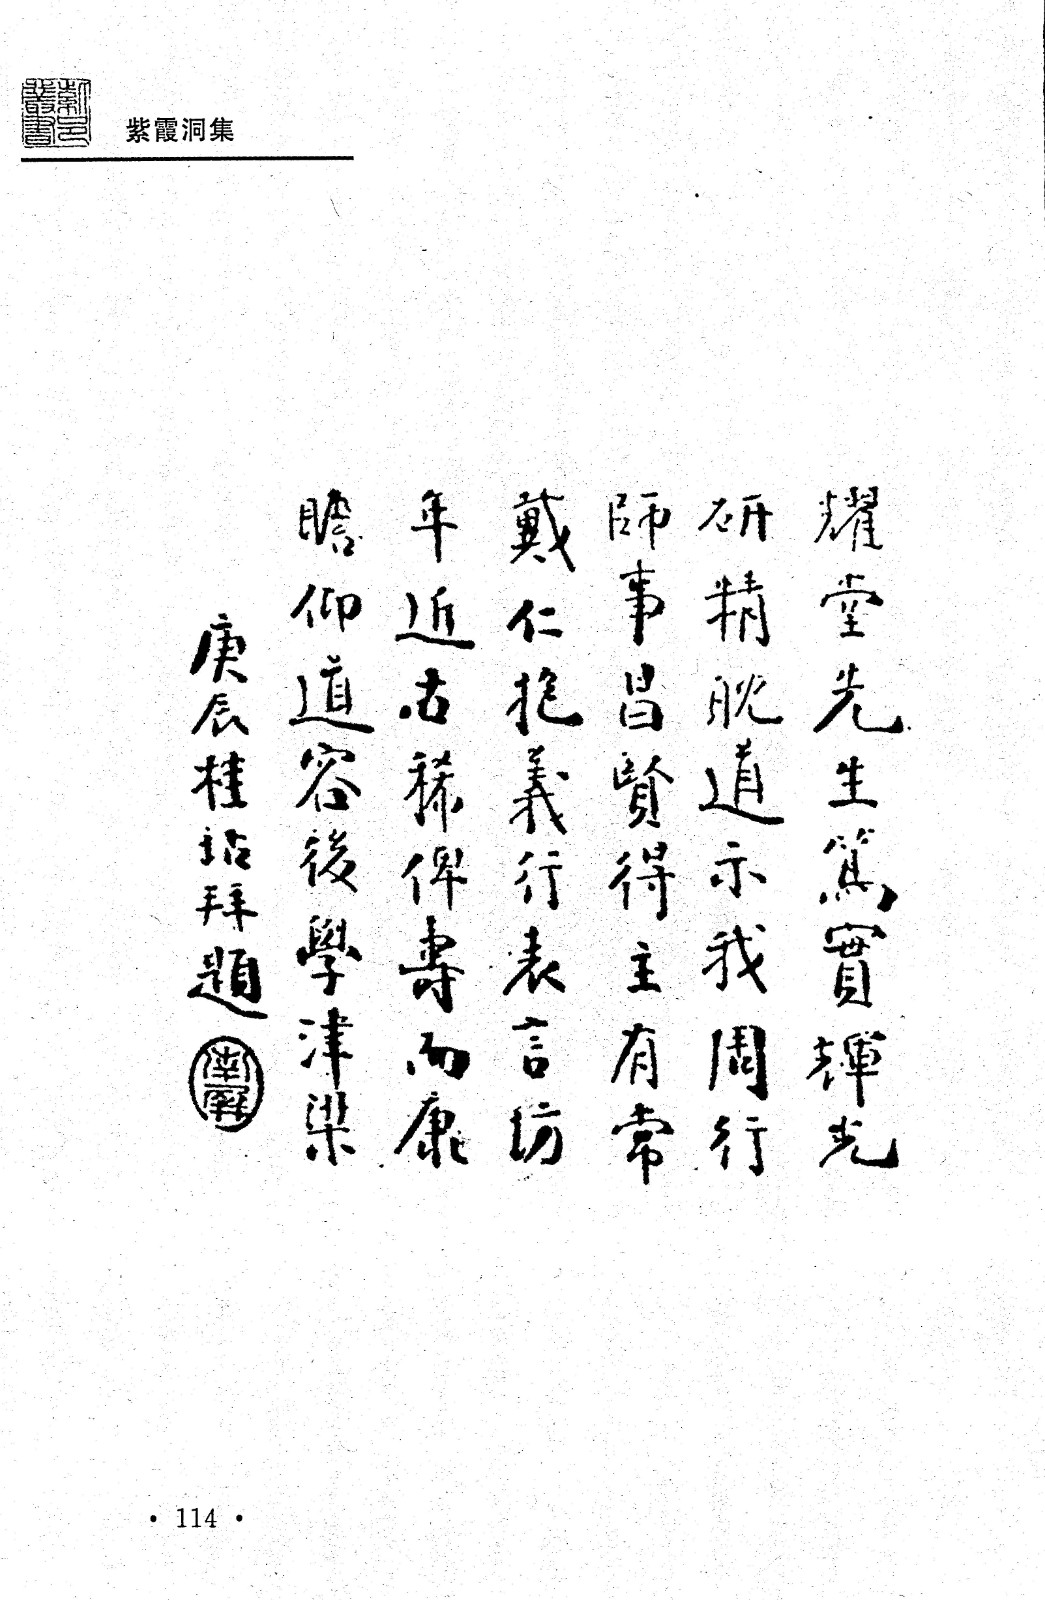 紫霞洞集
耀堂先生篤實輝光
研精耽道示我周行
師事昌賢得主有常
戴仁抱義行表言坊
年近古稀俾壽而康
瞻仰道容後學津梁
庚辰桂詒拜題
· 114 ·